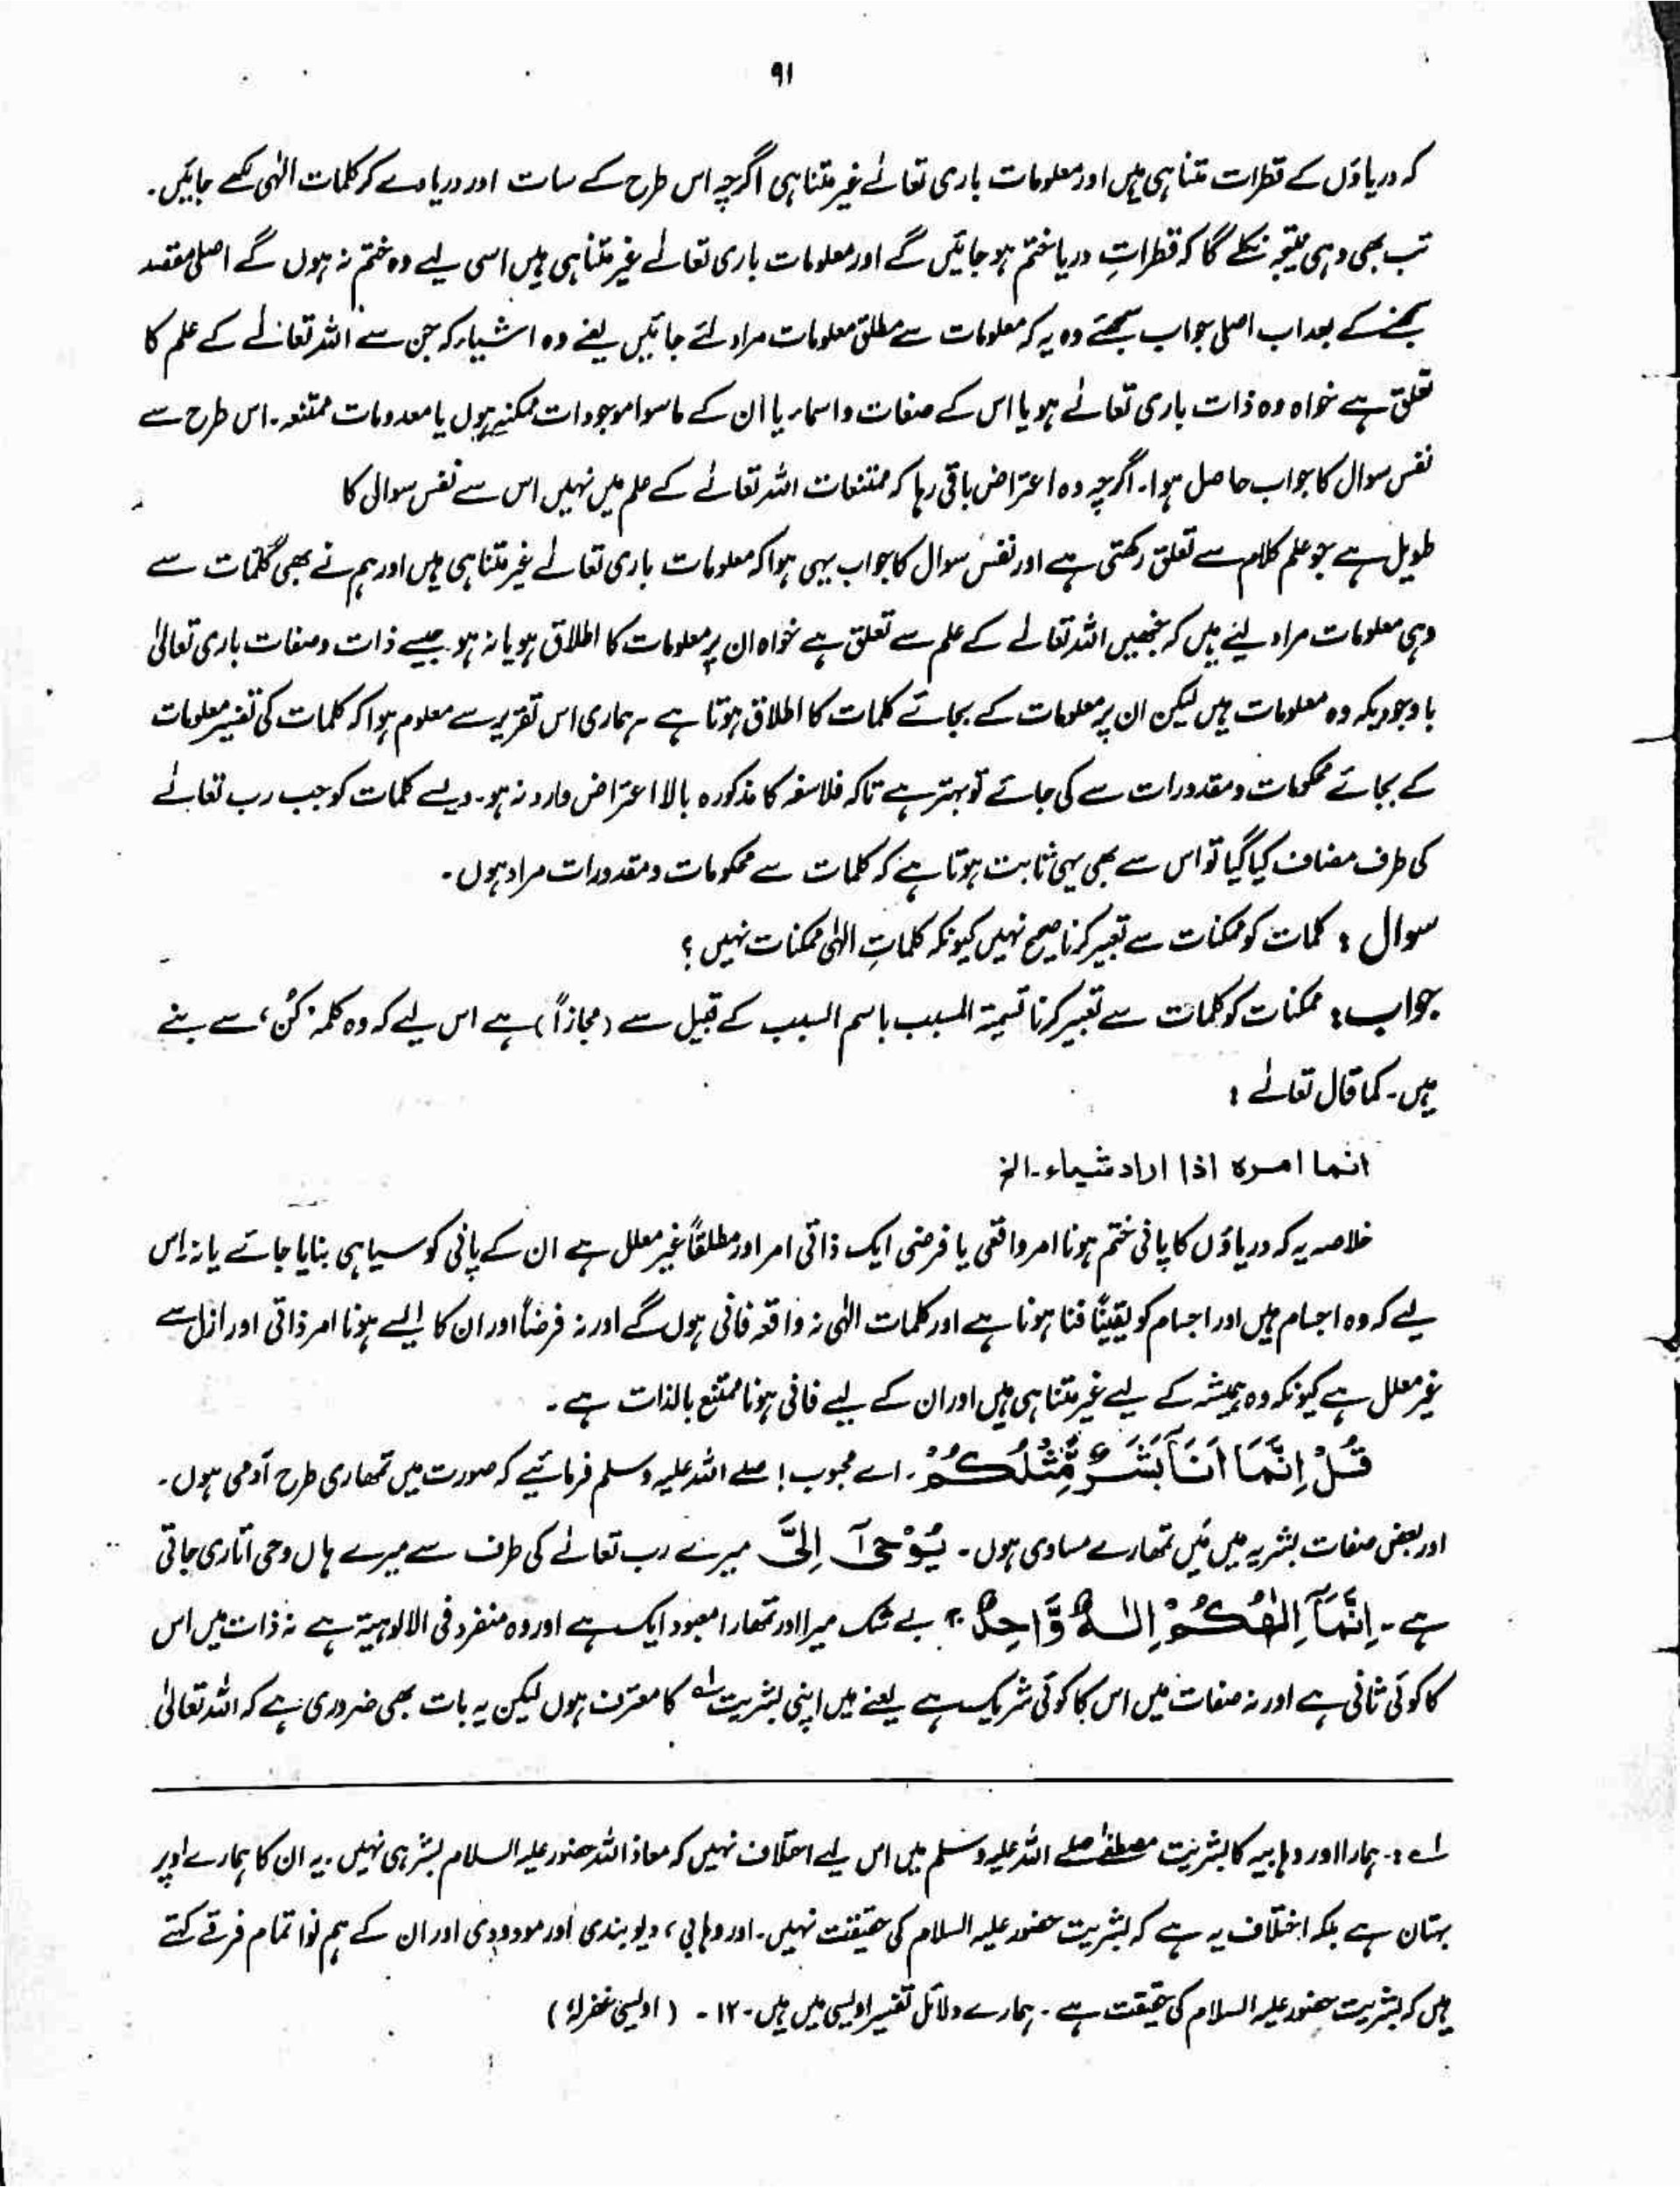 ۹۱
کہ دریاؤں کے قطرات متناہی ہیں اور معلومات باری تعالےٰ غیر متناہی اگرچہ اس طرح کے سات اور دریا دے کر کلمات الٰہی لکھے جائیں۔
تب بھی وہی نتیجہ نکلے گا کہ قطراتِ دریا ختم ہو جائیں گے اور معلومات باری تعالےٰ غیر متناہی ہیں اسی لیے وہ ختم نہ ہوں گے اصلی مقصد
سمجھنے کے بعد اب اصلی جواب سمجھئے وہ یہ کہ معلومات سے مطلق معلومات مراد لئے جائیں یعنے وہ اشیاء کہ جن سے اللہ تعالےٰ کے علم کا
تعلق ہے خواہ وہ ذات باری تعالےٰ ہو یا اس کے صفات واسماء یا ان کے ماسوا موجودات ممکنہ ہوں یا معدومات ممتنعہ۔ اس طرح سے
نفس سوال کا جواب حاصل ہوا۔ اگرچہ وہ اعتراض باقی رہا کہ ممتنعات اللہ تعالےٰ کے علم میں نہیں اس سے نفس سوال کا
طویل ہے جو علم کلام سے تعلق رکھتی ہے اور نفس سوال کا جواب یہی ہوا کہ معلومات باری تعالےٰ غیر متناہی ہیں اور ہم نے بھی کلمات سے
وہی معلومات مراد لیئے ہیں کہ جنھیں اللہ تعالےٰ کے علم سے تعلق ہے خواہ ان پر معلومات کا اطلاق ہو یا نہ ہو جیسے ذات وصفات باری تعالیٰ
باوجودیکہ وہ معلومات ہیں لیکن ان پر معلومات کے بجائے کلمات کا اطلاق ہوتا ہے ۔ ہماری اس تقریر سے معلوم ہوا کہ کلمات کی تفسیر معلومات
کے بجائے محکومات ومقدورات سے کی جائے تو بہتر ہے تاکہ فلاسفہ کا مذکورہ بالا اعتراض وارد نہ ہو۔ ویسے کلمات کو جب رب تعالےٰ
کی طرف مضاف کیا گیا تو اس سے بھی یہی ثابت ہوتا ہے کہ کلمات سے محکومات ومقدورات مراد ہوں۔
سوال : کلمات کو ممکنات سے تعبیر کرنا صحیح نہیں کیونکہ کلماتِ الٰہی ممکنات نہیں ؟
جواب : ممکنات کو کلمات سے تعبیر کرنا تسمیۃ المسبب باسم السبب کے قبیل سے (مجازاً) ہے اس لیے کہ وہ کلمۂ ’کُن‘ سے بنے
ہیں۔ کما قال تعالےٰ :
انما امرہ اذا اراد شیاء۔ الخ
خلاصہ یہ کہ دریاؤں کا پانی ختم ہونا امر واقعی یا فرضی ایک ذاتی امر اور مطلقاً غیر معلل ہے ان کے پانی کو سیاہی بنایا جائے یا نہ اس
لیے کہ وہ اجسام ہیں اور اجسام کو یقیناً فنا ہونا ہے اور کلمات الٰہی نہ واقعہ فانی ہوں گے اور نہ فرضاً اور ان کا ایسے ہونا امر ذاتی اور ازل سے
غیر معلل ہے کیونکہ وہ ہمیشہ کے لیے غیر متناہی ہیں اور ان کے لیے فانی ہونا ممتنع بالذات ہے۔
قُلْ اِنَّمَآ اَنَا بَشَرٌ مِّثْلُكُمْ۔ اے محبوب! صلے اللہ علیہ وسلم فرمائیے کہ صورت میں تمھاری طرح آدمی ہوں۔
اور بعض صفات بشریہ میں مَیں تمھارے مساوی ہوں۔ يُوْحٰٓى اِلَىَّ میرے رب تعالےٰ کی طرف سے میرے ہاں وحی اتاری جاتی
ہے۔ اِنَّمَآ اِلٰهُكُمْ اِلٰهٌ وَّاحِدٌ ج بے شک میرا اور تمھارا معبود ایک ہے اور وہ منفرد فی الالوہیۃ ہے نہ ذات میں اس
کا کوئی ثانی ہے اور نہ صفات میں اس کا کوئی شریک ہے یعنے میں اپنی بشریت لے کا معترف ہوں لیکن یہ بات بھی ضروری ہے کہ اللہ تعالیٰ
لے :۔ ہمارا اور وہابیہ کا بشریت مصطفےٰ صلے اللہ علیہ وسلم میں اس لیے اختلاف نہیں کہ معاذ اللہ حضور علیہ السلام بشر ہی نہیں۔ یہ ان کا ہمارے اوپر
بہتان ہے بلکہ اختلاف یہ ہے کہ بشریت حضور علیہ السلام کی حقیقت نہیں۔ اور وہابی، دیوبندی اور مودودی اور ان کے ہم نوا تمام فرقے کہتے
ہیں کہ بشریت حضور علیہ السلام کی حقیقت ہے۔ ہمارے دلائل تفسیر اویسی میں ہیں۔ ۱۲۔ (اویسی غفرلہٗ)